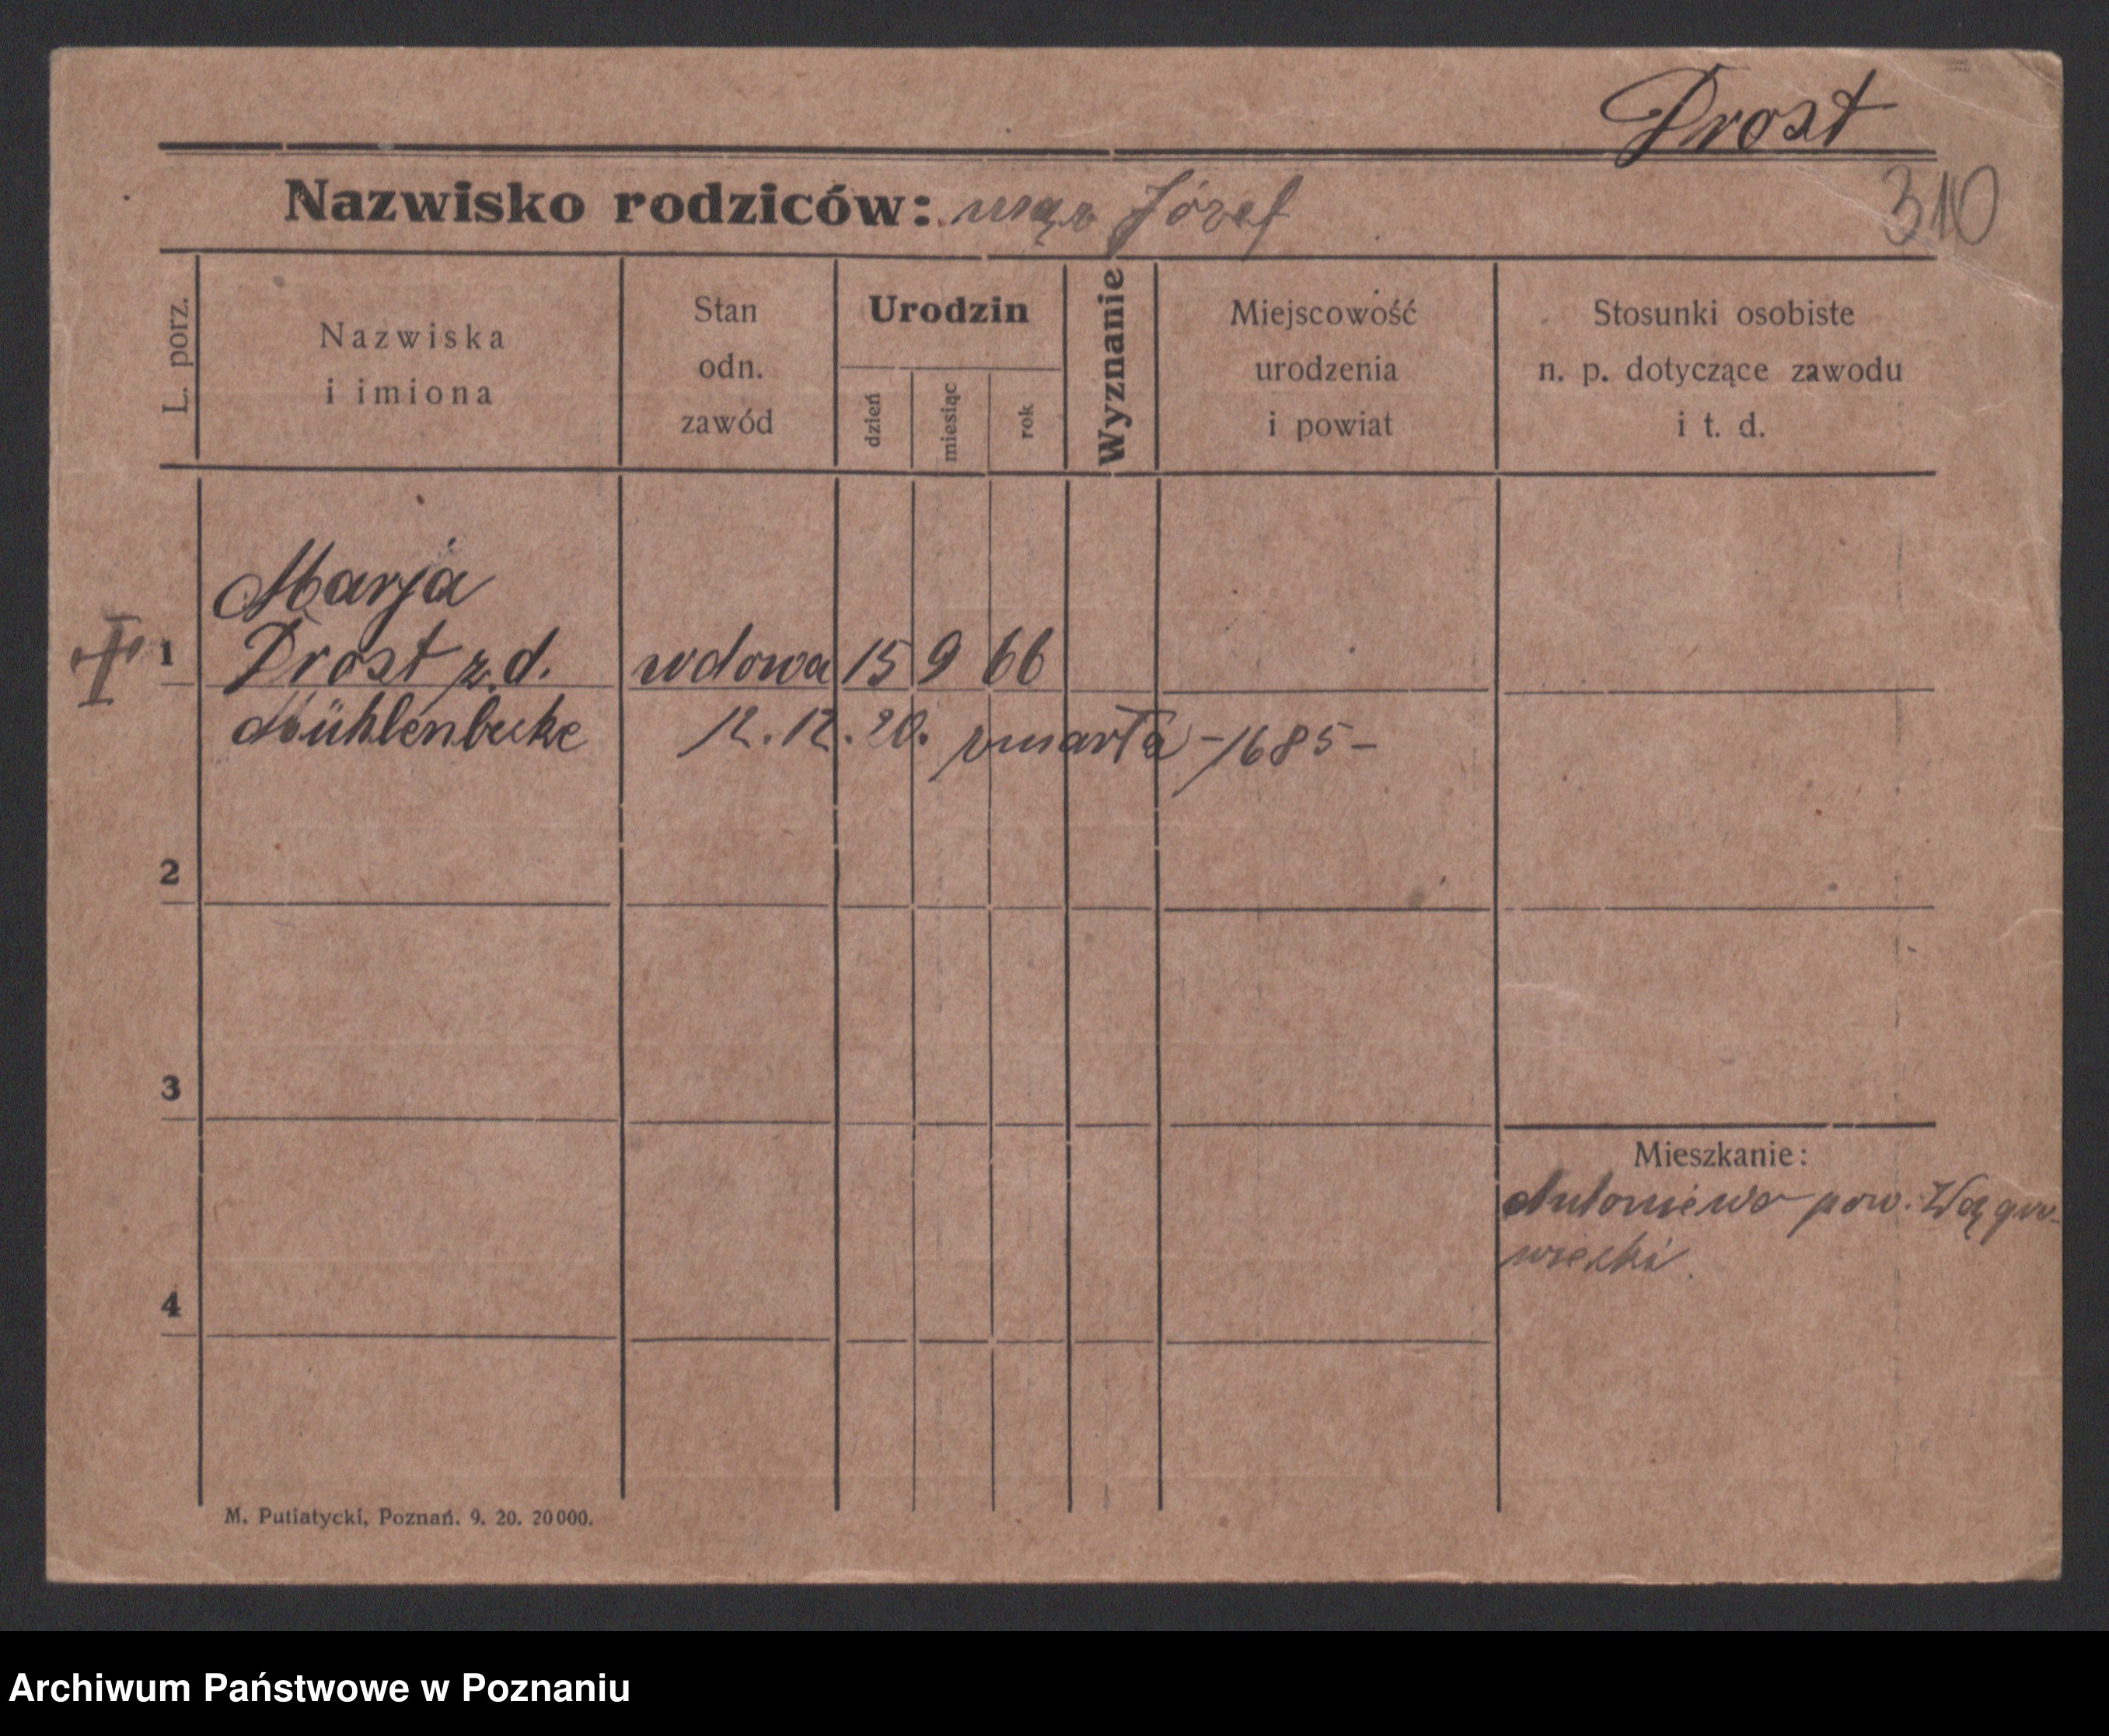 Drost
Nazwisko rodziców: mąż Józef
310
L. porz.
Nazwiska
i imiona
Stan
odn.
zawód
Urodzin
dzień
miesiąc
rok
Wyznanie
Miejscowość
urodzenia
i powiat
Stosunki osobiste
n. p. dotyczące zawodu
i t. d.
Marja
1 Drost z. d. wdowa 15 9 66
Mühlenbecke 12. 12. 20. zmarła -1685-
2
3
Mieszkanie:
Antoniewo pow. Wągro-
wiecki.
4
M. Putiatycki, Poznań. 9. 20. 20000.
Archiwum Państwowe w Poznaniu